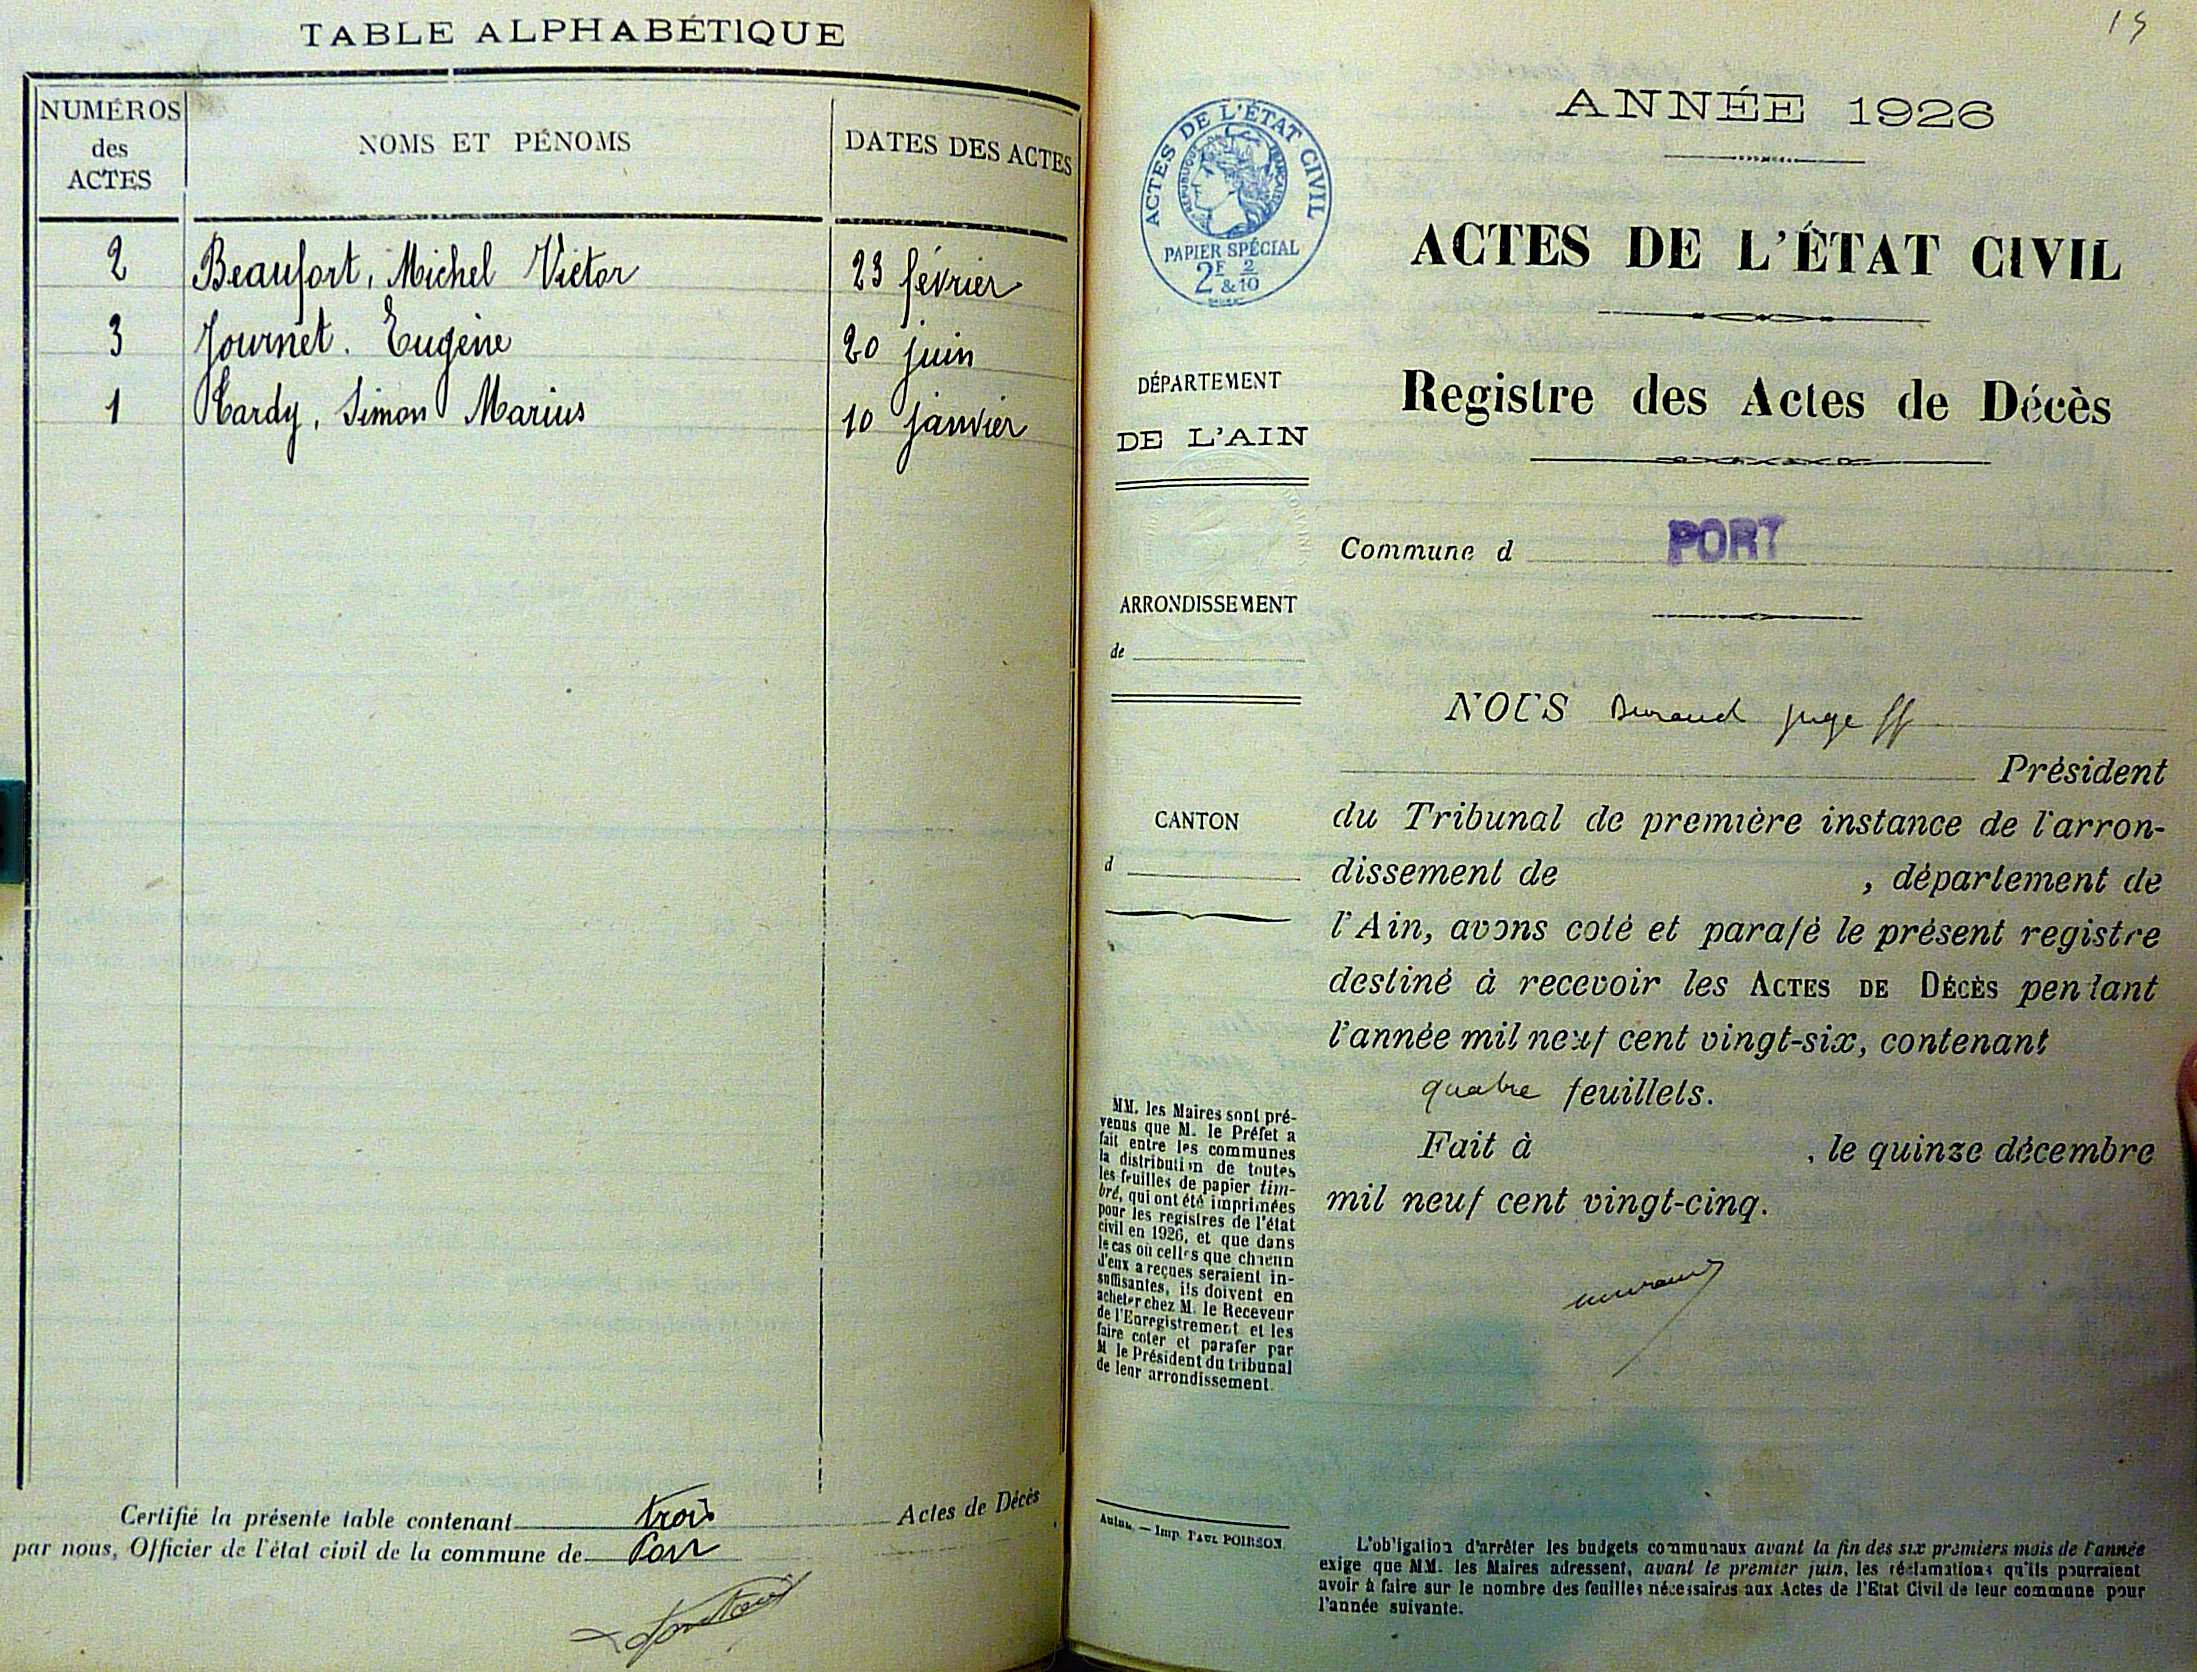 TABLE ALPHABÉTIQUE
NUMÉROS des ACTES
NOMS ET PÉNOMS
DATES DES ACTES
2 Beaufort, Michel Victor 23 février
3 Journet. Eugène 20 juin
1 Hardy, Simon Marius 10 janvier
Certifié la présente table contenant trois Actes de Décès
par nous, Officier de l'état civil de la commune de Port
15
ANNÉE 1926
ACTES DE L'ÉTAT CIVIL
RÉPUBLIQUE FRANÇAISE
PAPIER SPÉCIAL
2F & 2/10
ACTES DE L'ÉTAT CIVIL
Registre des Actes de Décès
DÉPARTEMENT
DE L'AIN
Commune d PORT
ARRONDISSEMENT
de
NOUS Durand juge ff
Président
CANTON
d
du Tribunal de première instance de l'arron-
dissement de , département de
l'Ain, avons coté et parafé le présent registre
destiné à recevoir les ACTES DE DÉCÈS pendant
l'année mil neuf cent vingt-six, contenant
quatre feuillets.
Fait à , le quinze décembre
mil neuf cent vingt-cinq.
Durand
MM. les Maires sont pré-
venus que M. le Préfet a
fait entre les communes
la distribution de toutes
les feuilles de papier tim-
bré, qui ont été imprimées
pour les registres de l'état
civil en 1926, et que dans
le cas où celles que chacun
d'eux a reçues seraient in-
suffisantes, ils doivent en
acheter chez M. le Receveur
de l'Enregistrement et les
faire coter et parafer par
M le Président du tribunal
de leur arrondissement.
Autun. — Imp. PAUL POIRSON.
L'obligation d'arrêter les budgets communaux avant la fin des six premiers mois de l'année
exige que MM. les Maires adressent, avant le premier juin, les réclamations qu'ils pourraient
avoir à faire sur le nombre des feuilles nécessaires aux Actes de l'Etat Civil de leur commune pour
l'année suivante.